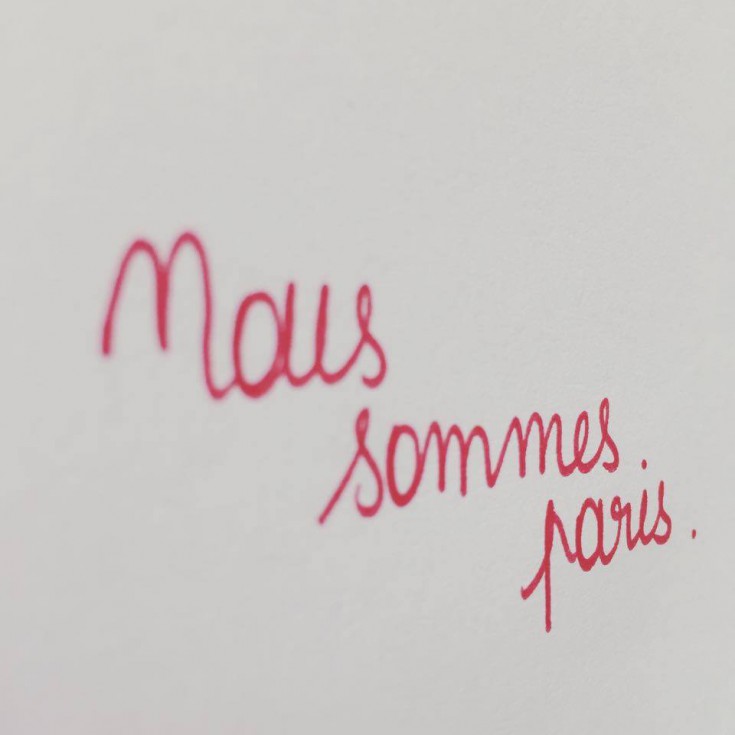 Nous
sommes
paris.